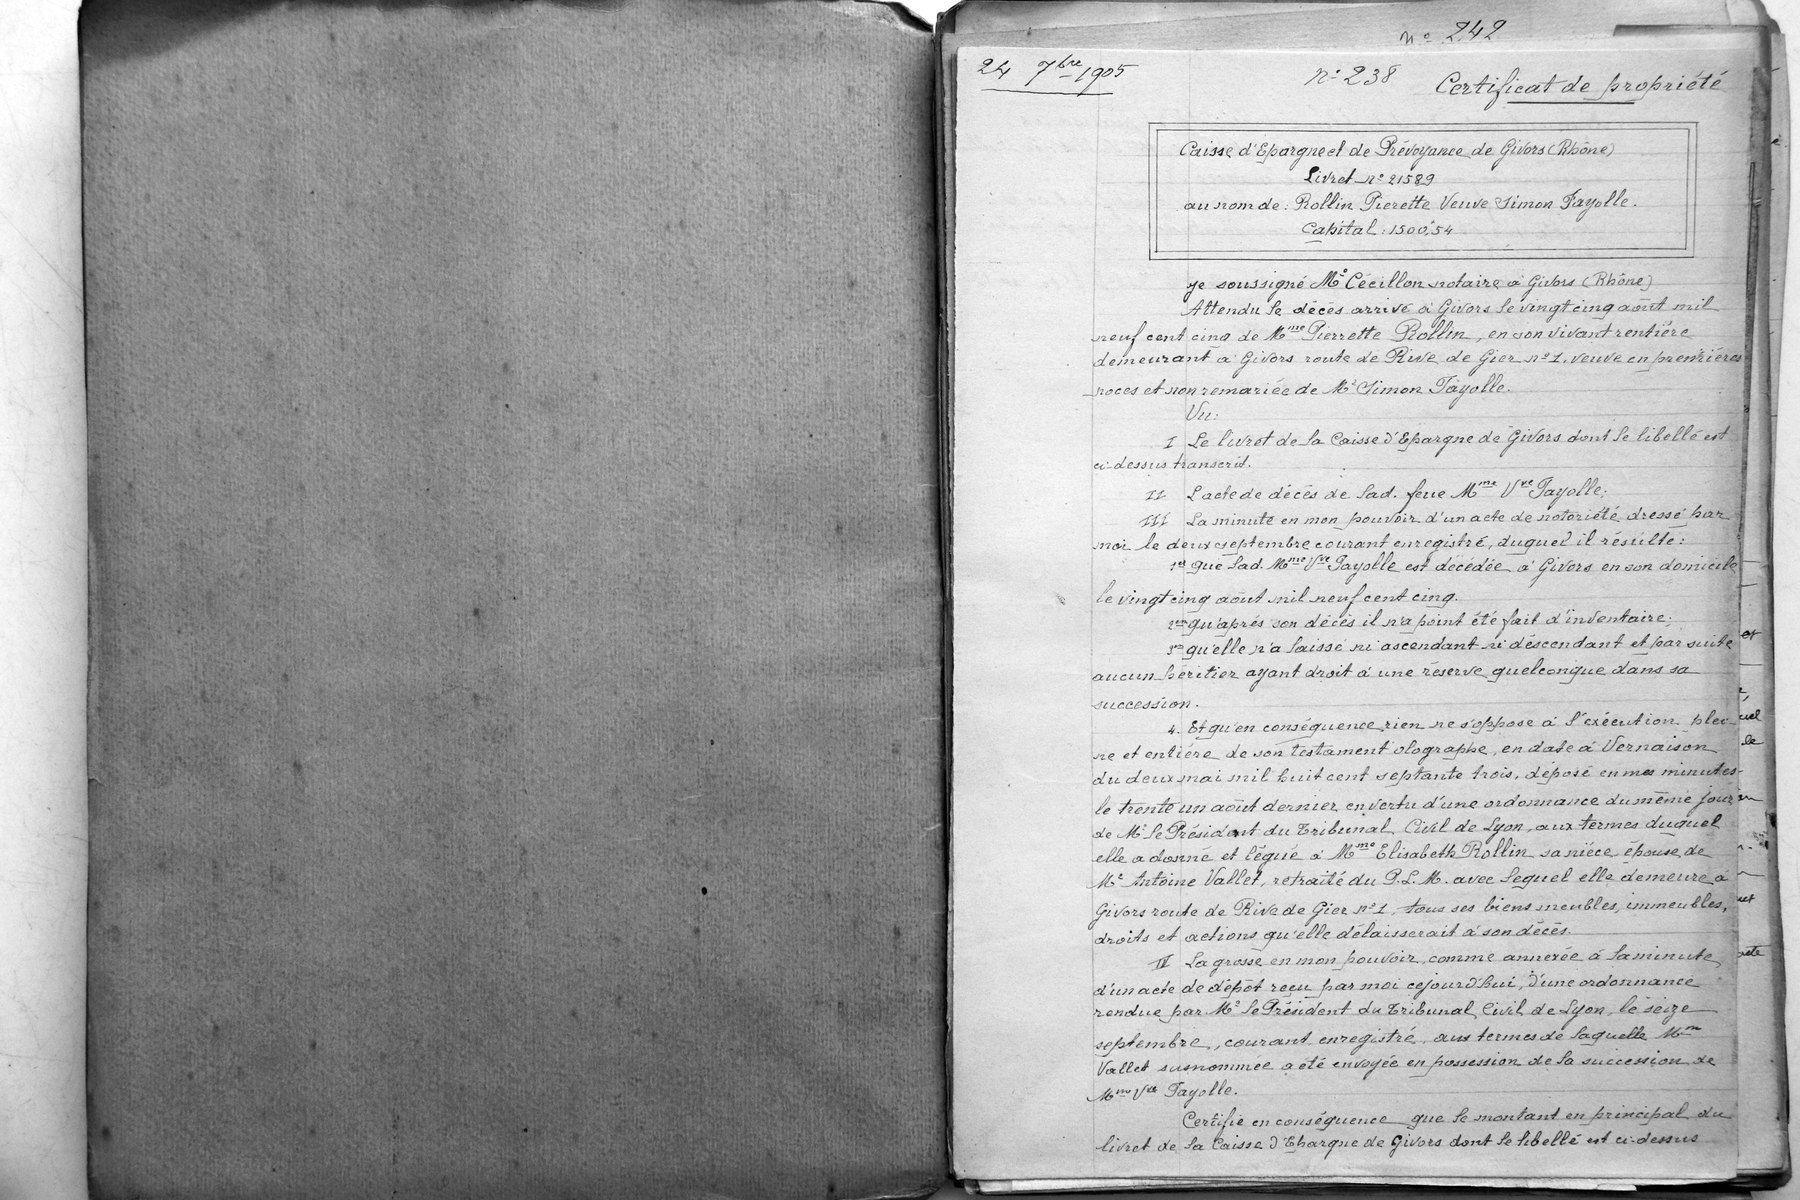 N° 242
24 7bre 1905
N° 238 Certificat de propriété
Caisse d'Epargne et de Prévoyance de Givors (Rhône)
Livret N° 21589
au nom de : Rollin Pierette Veuve Simon Fayolle.
Capital : 1500,54
Je soussigné Me Cécillon notaire à Givors (Rhône)
Attendu le décès arrivé à Givors le vingt cinq août mil
neuf cent cinq de Mme Pierrette Rollin, en son vivant rentière
demeurant à Givors route de Rive de Gier n° 1, veuve en premières
noces et non remariée de Mr Simon Fayolle.
Vu :
I Le livret de la Caisse d'Epargne de Givors dont le libellé est
ci-dessus transcrit.
II L'acte de décès de lad. feue Mme Vve Fayolle ;
III La minute en mon pouvoir d'un acte de notoriété dressé par
moi le deux septembre courant enregistré, duquel il résulte :
1er que lad. Mme Vve Fayolle est décédée à Givors en son domicile
le vingt cinq août mil neuf cent cinq.
2em qu'après son décès il n'a point été fait d'inventaire ;
3em qu'elle n'a laissé ni ascendant ni déscendant et par suite
aucun héritier ayant droit à une réserve quelconque dans sa
succession.
4. Et qu'en conséquence rien ne s'oppose à l'exécution plei-
ne et entière de son testament olographe, en date à Vernaison
du deux mai mil huit cent septante trois, déposé en mes minutes
le trente un août dernier en vertu d'une ordonnance du même jour
de Mr le Président du Tribunal Civil de Lyon, aux termes duquel
elle a donné et légué à Mme Elisabeth Rollin sa nièce épouse de
Mr Antoine Vallet, retraité du P.L.M. avec lequel elle demeure à
Givors route de Rive de Gier n° 1, tous ses biens meubles, immeubles,
droits et actions qu'elle délaisserait à son décès.
IV La grosse en mon pouvoir, comme annexée à la minute
d'un acte de dépôt reçu par moi cejourd'hui, d'une ordonnance
rendue par Mr le Président du Tribunal Civil de Lyon, le seize
septembre, courant enregistré, aux termes de laquelle Mme
Vallet susnommée a été envoyée en possession de la succession de
Mme Vve Fayolle.
Certifie en conséquence que le montant en principal du
livret de la Caisse d'Epargne de Givors dont le libellé est ci-dessus